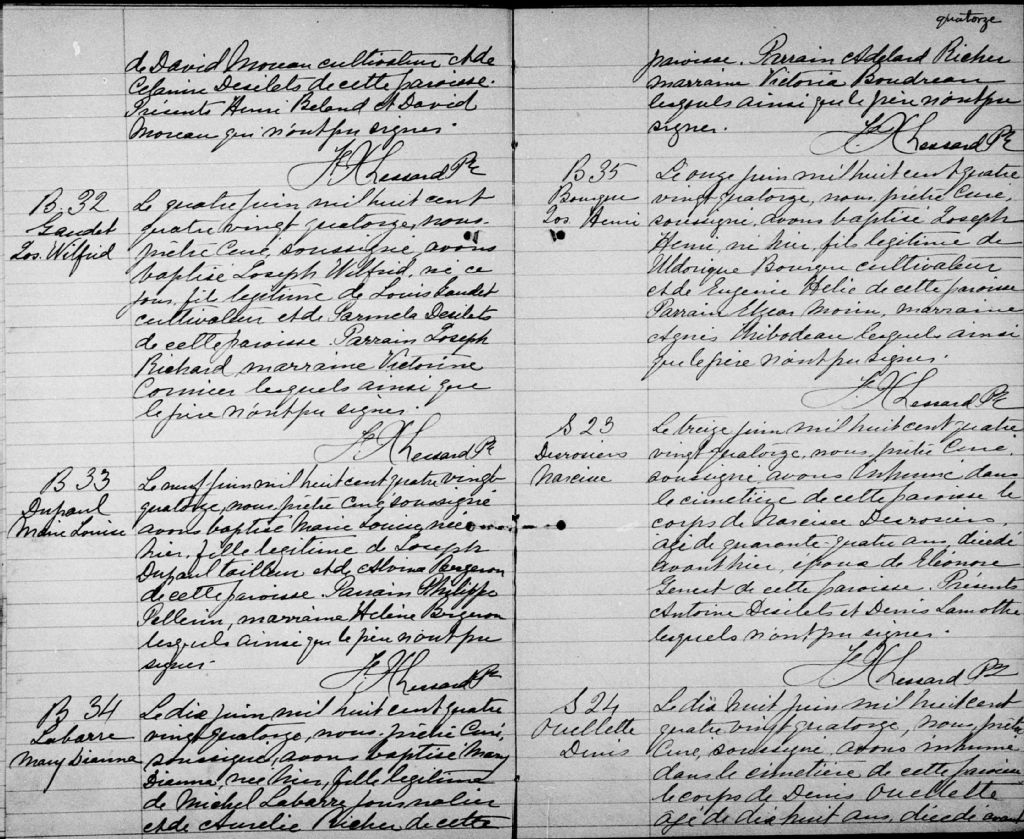 de David Moreau cultivateur et de
Celanire Desilets de cette paroisse.
Présents Henri Beland et David
Moreau qui n'ont pu signer.
F X Lessard Ptre
B. 32
Gaudet
Jos. Wilfrid
Le quatre juin mil huit cent
quatre vingt quatorze, nous.
prêtre Curé, soussigné avons
baptisé Joseph Wilfrid, né ce
jour, fils legitime de Louis Gaudet
cultivateur et de Parmela Desilets
de cette paroisse. Parrain Joseph
Richard, marraine Victorine
Cormier lesquels ainsi que
le père n'ont pu signer.
F X Lessard Ptre
B 33
Dupaul
Marie Louise
Le neuf juin mil huit cent quatre vingt
quatorze, nous, prêtre curé soussigné
avons baptisé Marie Louise, née
hier, fille legitime de Joseph
Dupaul tailleur et de Alvina Bergeron
de cette paroisse Parrain Philippe
Pellerin, marraine Hélène Bergeron
lesquels ainsi que le père n'ont pu
signer.
F X Lessard Ptre
B 34
Labarre
Mary Dianna
Le dix juin mil huit cent quatre
vingt quatorze, nous, prêtre Curé,
soussigné, avons baptisé Mary
Dianna, née hier, fille legitime
de Michel Labarre journalier
et de Aurelie Richer de cette
quatorze
paroisse. Parrain Adelard Richer
marraine Victoria Boudreau
lesquels ainsi que le père n'ont pu
signer.
F X Lessard Ptre
B 35
Bourque
Jos. Henri
Le onze juin mil huit cent quatre
vingt quatorze, nous, prêtre Curé,
soussigné, avons baptisé Joseph
Henri, né hier, fils legitime de
Uldorique Bourque cultivateur
et de Eugenie Hélie de cette paroisse
Parrain Elzear Morin, marraine
Agnes Thibodeau lesquels ainsi
que le père n'ont pu signer.
F X Lessard Ptre
S 23
Desrosiers
Narcisse
Le treize juin mil huit cent quatre
vingt quatorze, nous, prêtre Curé,
soussigné, avons inhumé dans
le cimetière de cette paroisse le
corps de Narcisse Desrosiers,
agé de quarante-quatre ans, décédé
avant hier, époux de Eléonore
Genest de cette paroisse. Présents
Antoine Desilets et Denis Lamothe
lesquels n'ont pu signer.
F X Lessard Ptre
S 24
Ouellette
Denis
Le dix huit juin mil huit cent
quatre vingt quatorze, nous, prêtre
Curé, soussigné, avons inhumé
dans le cimetière de cette paroisse
le corps de Denis Ouellette
agé de dix huit ans, décédé avant